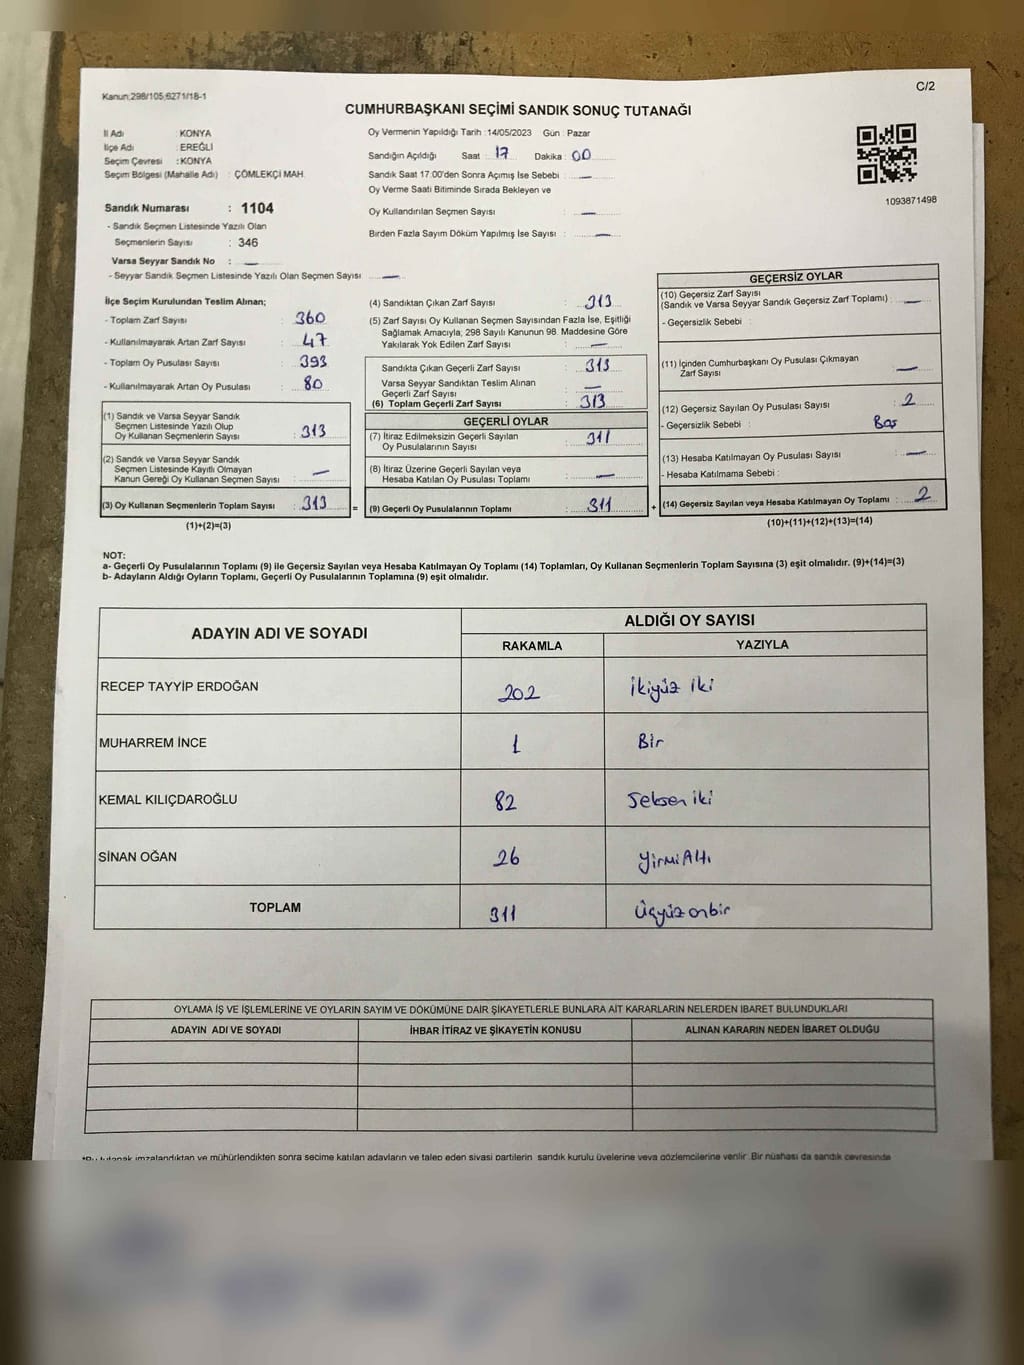 C/2
Kanun;298/105;6271/18-1
CUMHURBAŞKANI SEÇİMİ SANDIK SONUÇ TUTANAĞI
İl Adı : KONYA
İlçe Adı : EREĞLİ
Seçim Çevresi : KONYA
Seçim Bölgesi (Mahalle Adı) : ÇÖMLEKÇİ MAH.
Sandık Numarası : 1104
- Sandık Seçmen Listesinde Yazılı Olan
Seçmenlerin Sayısı : 346
Varsa Seyyar Sandık No : —
- Seyyar Sandık Seçmen Listesinde Yazılı Olan Seçmen Sayısı —
Oy Vermenin Yapıldığı Tarih :14/05/2023 Gün : Pazar
Sandığın Açıldığı Saat : 17 Dakika : 00
Sandık Saat 17:00'den Sonra Açımış İse Sebebi : —
Oy Verme Saati Bitiminde Sırada Bekleyen ve
Oy Kullandırılan Seçmen Sayısı : —
Birden Fazla Sayım Döküm Yapılmış İse Sayısı : —
1093871498
İlçe Seçim Kurulundan Teslim Alınan;
- Toplam Zarf Sayısı : 360
- Kullanılmayarak Artan Zarf Sayısı : 47
- Toplam Oy Pusulası Sayısı : 393
- Kullanılmayarak Artan Oy Pusulası : 80
(1) Sandık ve Varsa Seyyar Sandık
Seçmen Listesinde Yazılı Olup
Oy Kullanan Seçmenlerin Sayısı : 313
(2) Sandık ve Varsa Seyyar Sandık
Seçmen Listesinde Kayıtlı Olmayan
Kanun Gereği Oy Kullanan Seçmen Sayısı : —
(3) Oy Kullanan Seçmenlerin Toplam Sayısı : 313 =
(1)+(2)=(3)
(4) Sandıktan Çıkan Zarf Sayısı : 313
(5) Zarf Sayısı Oy Kullanan Seçmen Sayısından Fazla İse, Eşitliği
Sağlamak Amacıyla, 298 Sayılı Kanunun 98. Maddesine Göre
Yakılarak Yok Edilen Zarf Sayısı : —
Sandıkta Çıkan Geçerli Zarf Sayısı : 313
Varsa Seyyar Sandıktan Teslim Alınan
Geçerli Zarf Sayısı : —
(6) Toplam Geçerli Zarf Sayısı : 313
GEÇERLİ OYLAR
(7) İtiraz Edilmeksizin Geçerli Sayılan
Oy Pusulalarının Sayısı : 311
(8) İtiraz Üzerine Geçerli Sayılan veya
Hesaba Katılan Oy Pusulası Toplamı : —
(9) Geçerli Oy Pusulalarının Toplamı : 311 +
GEÇERSİZ OYLAR
(10) Geçersiz Zarf Sayısı
(Sandık ve Varsa Seyyar Sandık Geçersiz Zarf Toplamı) : —
- Geçersizlik Sebebi :
(11) İçinden Cumhurbaşkanı Oy Pusulası Çıkmayan
Zarf Sayısı : —
(12) Geçersiz Sayılan Oy Pusulası Sayısı : 2
- Geçersizlik Sebebi : Boş
(13) Hesaba Katılmayan Oy Pusulası Sayısı : —
- Hesaba Katılmama Sebebi :
(14) Geçersiz Sayılan veya Hesaba Katılmayan Oy Toplamı : 2
(10)+(11)+(12)+(13)=(14)
NOT:
a- Geçerli Oy Pusulalarının Toplamı (9) ile Geçersiz Sayılan veya Hesaba Katılmayan Oy Toplamı (14) Toplamları, Oy Kullanan Seçmenlerin Toplam Sayısına (3) eşit olmalıdır. (9)+(14)=(3)
b- Adayların Aldığı Oyların Toplamı, Geçerli Oy Pusulalarının Toplamına (9) eşit olmalıdır.
ADAYIN ADI VE SOYADI ALDIĞI OY SAYISI
RAKAMLA YAZIYLA
RECEP TAYYİP ERDOĞAN 202 İkiyüz iki
MUHARREM İNCE 1 Bir
KEMAL KILIÇDAROĞLU 82 Seksen iki
SİNAN OĞAN 26 Yirmi Altı
TOPLAM 311 Üçyüz onbir
OYLAMA İŞ VE İŞLEMLERİNE VE OYLARIN SAYIM VE DÖKÜMÜNE DAİR ŞİKAYETLERLE BUNLARA AİT KARARLARIN NELERDEN İBARET BULUNDUKLARI
ADAYIN ADI VE SOYADI İHBAR İTİRAZ VE ŞİKAYETİN KONUSU ALINAN KARARIN NEDEN İBARET OLDUĞU
*Bu tutanak imzalandıktan ve mühürlendikten sonra seçime katılan adayların ve talep eden siyasi partilerin sandık kurulu üyelerine veya gözlemcilerine verilir. Bir nüshası da sandık çevresinde